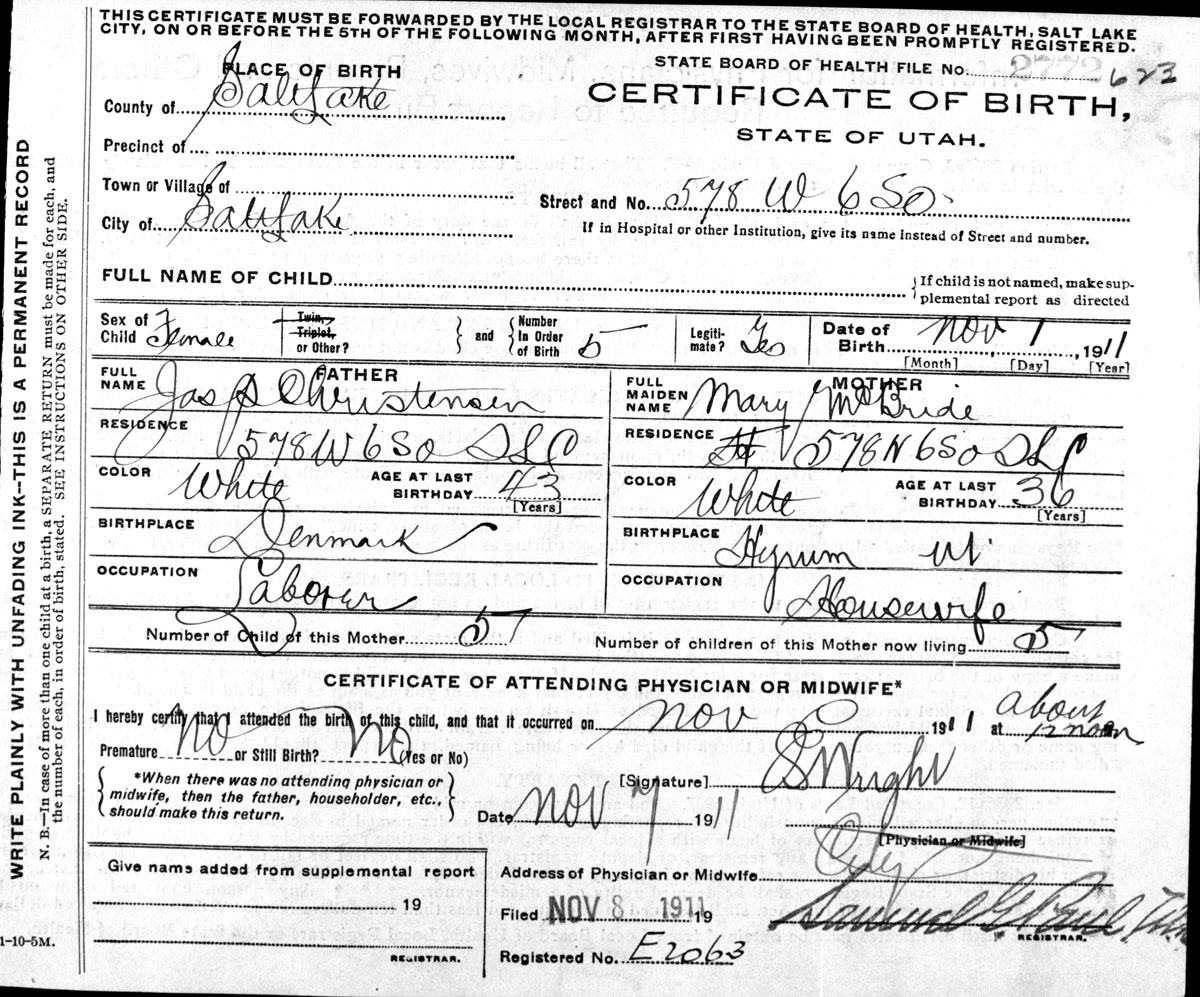 THIS CERTIFICATE MUST BE FORWARDED BY THE LOCAL REGISTRAR TO THE STATE BOARD OF HEALTH, SALT LAKE
CITY, ON OR BEFORE THE 5TH OF THE FOLLOWING MONTH, AFTER FIRST HAVING BEEN PROMPTLY REGISTERED.
PLACE OF BIRTH
STATE BOARD OF HEALTH FILE No. 2772 623
County of Salt Lake
CERTIFICATE OF BIRTH,
STATE OF UTAH.
Precinct of
Town or Village of
Street and No. 578 W 6 So.
City of Salt Lake
If in Hospital or other Institution, give its name instead of Street and number.
FULL NAME OF CHILD
If child is not named, make sup-
plemental report as directed
Sex of Child Female
Twin, Triplet, or Other?
and
Number In Order of Birth 5
Legiti-mate? Yes
Date of Birth Nov 1, 1911
[Month] [Day] [Year]
FATHER
FULL NAME Jas S Christensen
RESIDENCE 578 W 6 So SLC
COLOR White
AGE AT LAST BIRTHDAY 43
[Years]
BIRTHPLACE Denmark
OCCUPATION Laborer
MOTHER
FULL MAIDEN NAME Mary McBride
RESIDENCE 578 W 6 So SLC
COLOR White
AGE AT LAST BIRTHDAY 36
[Years]
BIRTHPLACE Hyrum Ut
OCCUPATION Housewife
Number of Child of this Mother 5
Number of children of this Mother now living 5
CERTIFICATE OF ATTENDING PHYSICIAN OR MIDWIFE*
I hereby certify that I attended the birth of this child, and that it occurred on Nov 1911 at about noon
Premature No or Still Birth? No (Yes or No)
*When there was no attending physician or
midwife, then the father, householder, etc.,
should make this return.
[Signature] S Wright
Date Nov 7 1911
[Physician or Midwife]
Give name added from supplemental report
19
REGISTRAR.
Address of Physician or Midwife. City
Filed NOV 8 1911 19
REGISTRAR.
Registered No. E2063
1-10-5M.
WRITE PLAINLY WITH UNFADING INK--THIS IS A PERMANENT RECORD
N. B.--In case of more than one child at a birth, a SEPARATE RETURN must be made for each, and
the number of each, in order of birth, stated. SEE INSTRUCTIONS ON OTHER SIDE.